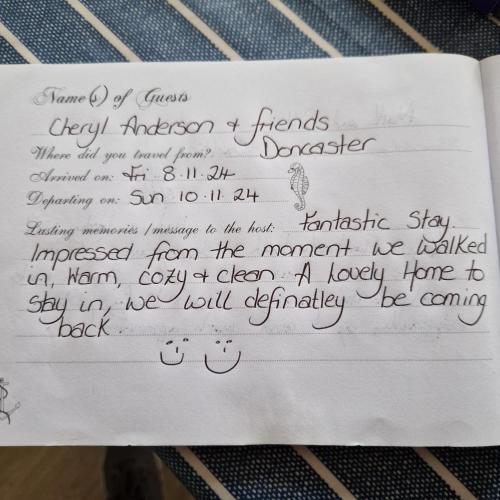 Name(s) of Guests
Cheryl Anderson + friends
Where did you travel from? Doncaster
Arrived on: Fri 8.11.24
Departing on: Sun 10.11.24
Lasting memories / message to the host: Fantastic Stay.
Impressed from the moment we walked
in, Warm, cozy + clean. A lovely Home to
stay in, we will definatley be coming
back.